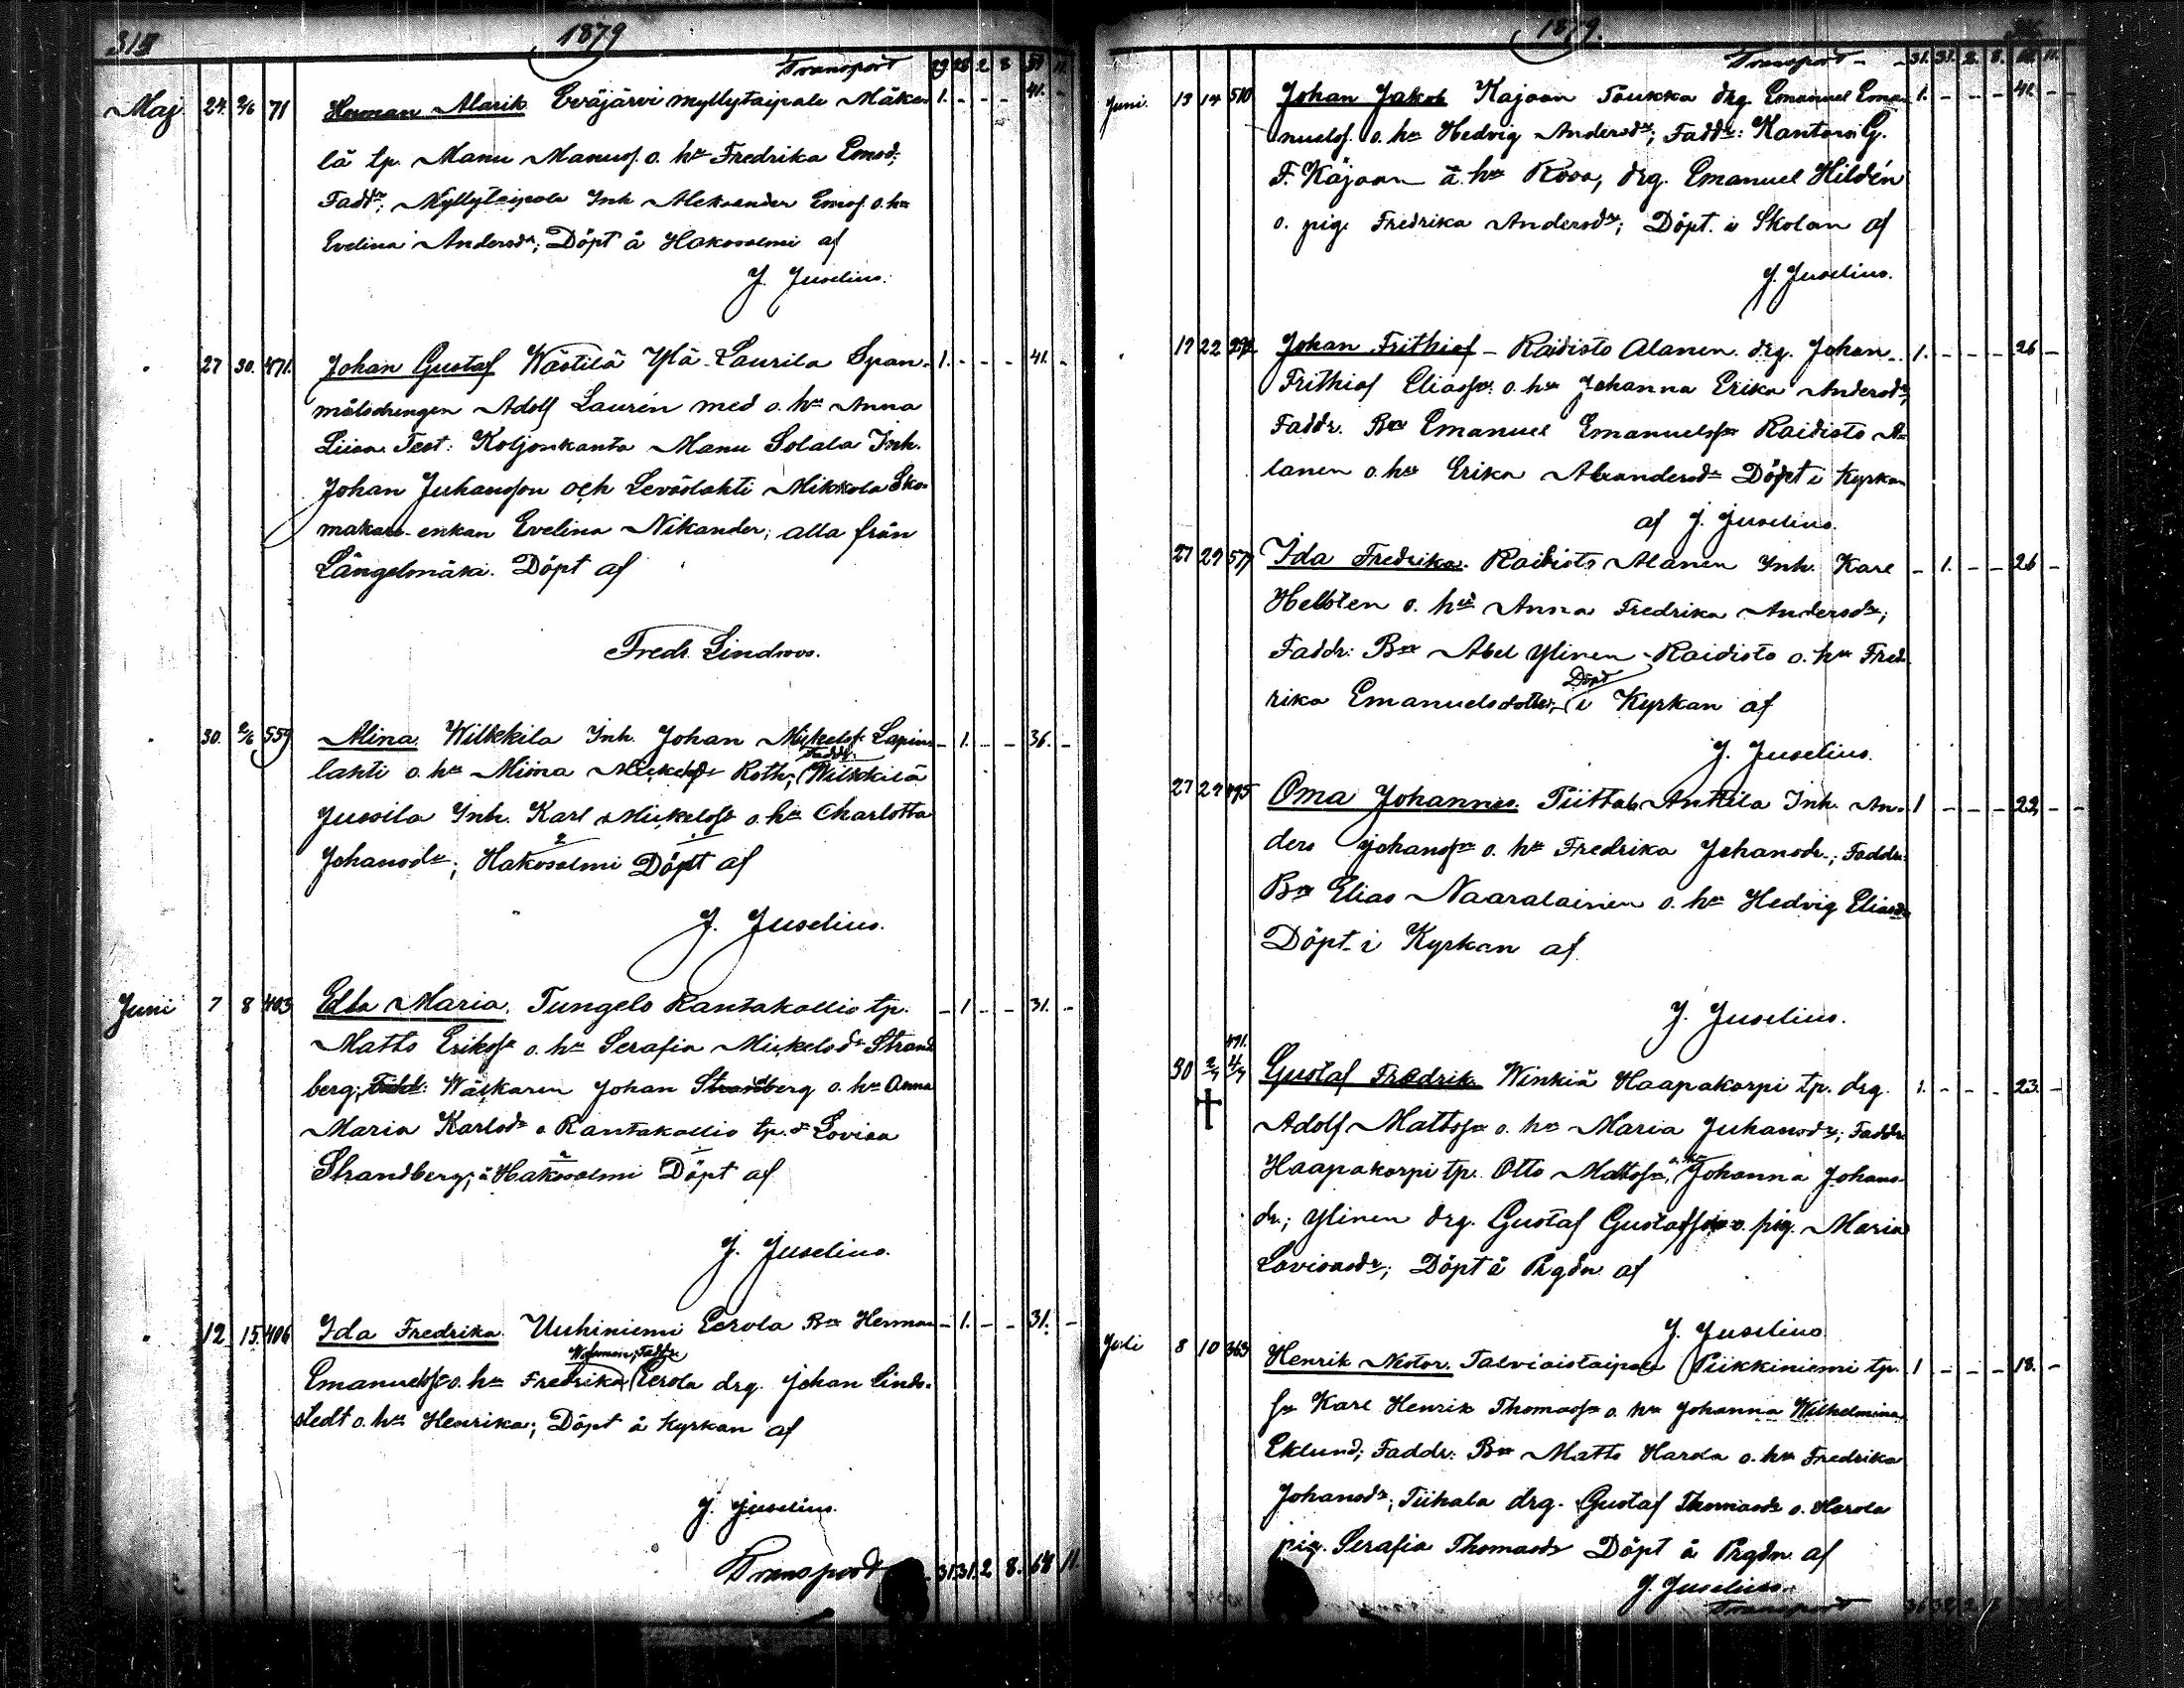 1879
Transport 29 28 2 8
Maj. 24. 2/6 71 Herman Alarik Eväjärvi Myllytaipale Mäke- 1. - - - 41. -
lä tp. Manu Manus. o. hu Fredrika Emsd;
Faddr; Myllytaipale Inh Aleksander Emsf. o. hu
Evelina Andersdr; Döpt å Hakosalmi af
J. Juselius.
27 30. 471. Johan Gustaf Wästilä Ylä-Laurila Span- 1. - - - 41. -
målsdrengen Adolf Laurén med o. hu Anna
Liisa. Test: Koljonkanta Manu Solala Inh.
Johan Juhansson och Leväslahti Mikkola Sko-
makare-enkan Evelina Nikander; alla från
Längelmäki. Döpt af
Fredr. Lindroos.
30. 2/6 559 Alina. Wilkkila Inh. Johan Mickelsf. Lapin- - 1. - - 36. -
Faddr.
lahti o. hu Miina Mickelsdr Roth; Wilkkilä
Jussila Inh. Karl Mickelsf o. hu Charlotta
Johansdr; Hakosalmi Döpt af
J. Juselius.
Juni 7 8 403 Edla Maria. Tungelo Rantakallio tp. - 1 - - 31. -
Matts Eriksf o. hu Serafia Mickelsdr Strand
berg; Fadd: Wäckaren Johan Strandberg o. hu Anna
Maria Karlsdr o Rantakallio tp. dr Lovisa
Strandberg; å Hakosalmi Döpt af
J. Juselius.
12 15. 406 Ida Fredrika. Uuhiniemi Eerola Bn Herman - 1. - - 31. -
Faddr.
Emanuelsf o. hu Fredrika Eerola drg. Johan Lind-
stedt o. hu Henrika; Döpt å kyrkan af
J. Juselius.
Transport 31. 31. 2 8. 64 11
1879.
Transport - 31. 31. 2. 8.
Juni. 13 14 510 Johan Jakob Kajaan Toukka drg. Emanuel Ema- 1. - - - 41. -
nuelsf. o. hu Hedvig Andersdr; Faddr: Kantorn G.
F. Kajaan å. hu Rosa, drg. Emanuel Hildén
o. pig. Fredrika Andersdr; Döpt. i Skolan af
J. Juselius.
19 22 292 Johan Frithiof - Raidisto Alanen. drg. Johan 1. - - - 26 -
Frithiof Eliassn. o. hu Johanna Erika Andersdr;
Faddr. Bn Emanuel Emanuelsfn Raidisto A-
lanen o. hu Erika Alexandersdr Döpt i Kyrkan
af J. Juselius.
27 29 577 Ida Fredrika. Raidisto Alanen Inh. Karl - 1. - - 26 -
Hellsten o. hu Anna Fredrika Andersdr;
Faddr: Bn Abel Ylinen - Raidisto o. hu Fred-
Döpt
rika Emanuelsdotter; i Kyrkan af
J. Juselius.
27 29 495 Oma Johannes. Tiittala Anttila Inh. An- 1 - - - 22, -
ders Johansfn o. hu Fredrika Johansdr.; Faddr:
Bn Elias Naaralainen o. hu Hedvig Eliasdr
Döpt i Kyrkan af
J. Juselius.
491.
30 2/7 4/7 Gustaf Fredrik. Winkiä Haapakorpi tp. drg. 1. - - - 23. -
Adolf Mattsfn o. hu Maria Juhansdr; Faddr
o. hu
Haapakorpi tp. Otto Mattsfn, Johanna Johans-
dr; Ylinen drg. Gustaf Gustafsfn o. pig. Maria
Lovisasdr; Döpt å Prgdn af
J. Juselius.
Juli 8 10 363 Henrik Nestor. Talviaistaipale Piikkiniemi tp. 1 - - - 18. -
fn Karl Henrik Thomasfn o. hu Johanna Wilhelmina
Eklund; Faddr: Bn Matts Harola o. hu Fredrika
Johansdr; Tiihala drg. Gustaf Thomasdr o. Harola
pig. Serafia Thomasdr Döpt å Prgdn af
J. Juselius.
Transport